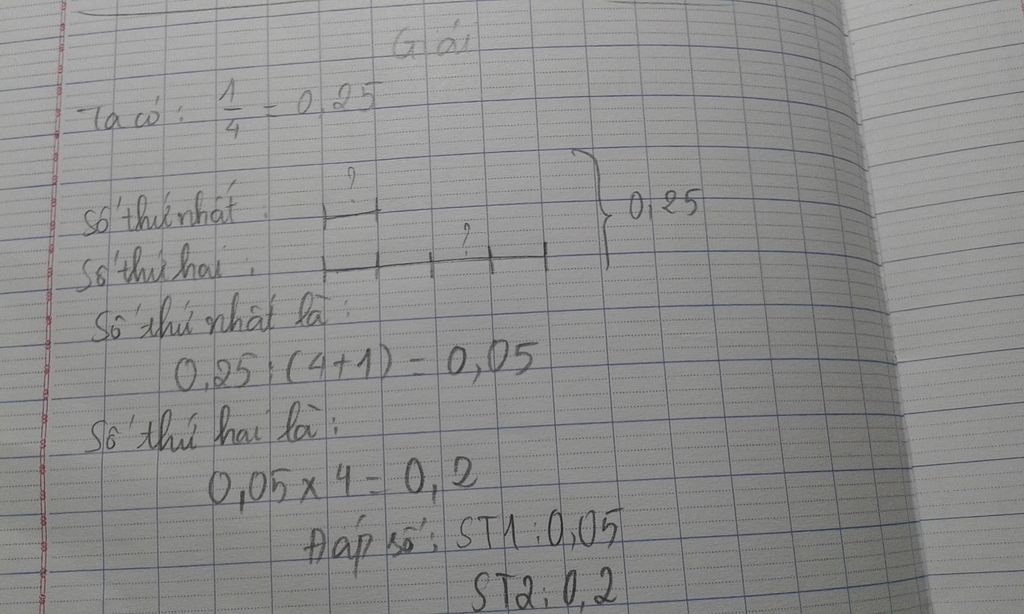 Giải
Ta có: 1/4 = 0,25
?
Số thứ nhất:
0,25
?
Số thứ hai:
Số thứ nhất là:
0,25 : (4+1) = 0,05
Số thứ hai là:
0,05 x 4 = 0,2
Đáp số: ST1: 0,05
ST2: 0,2